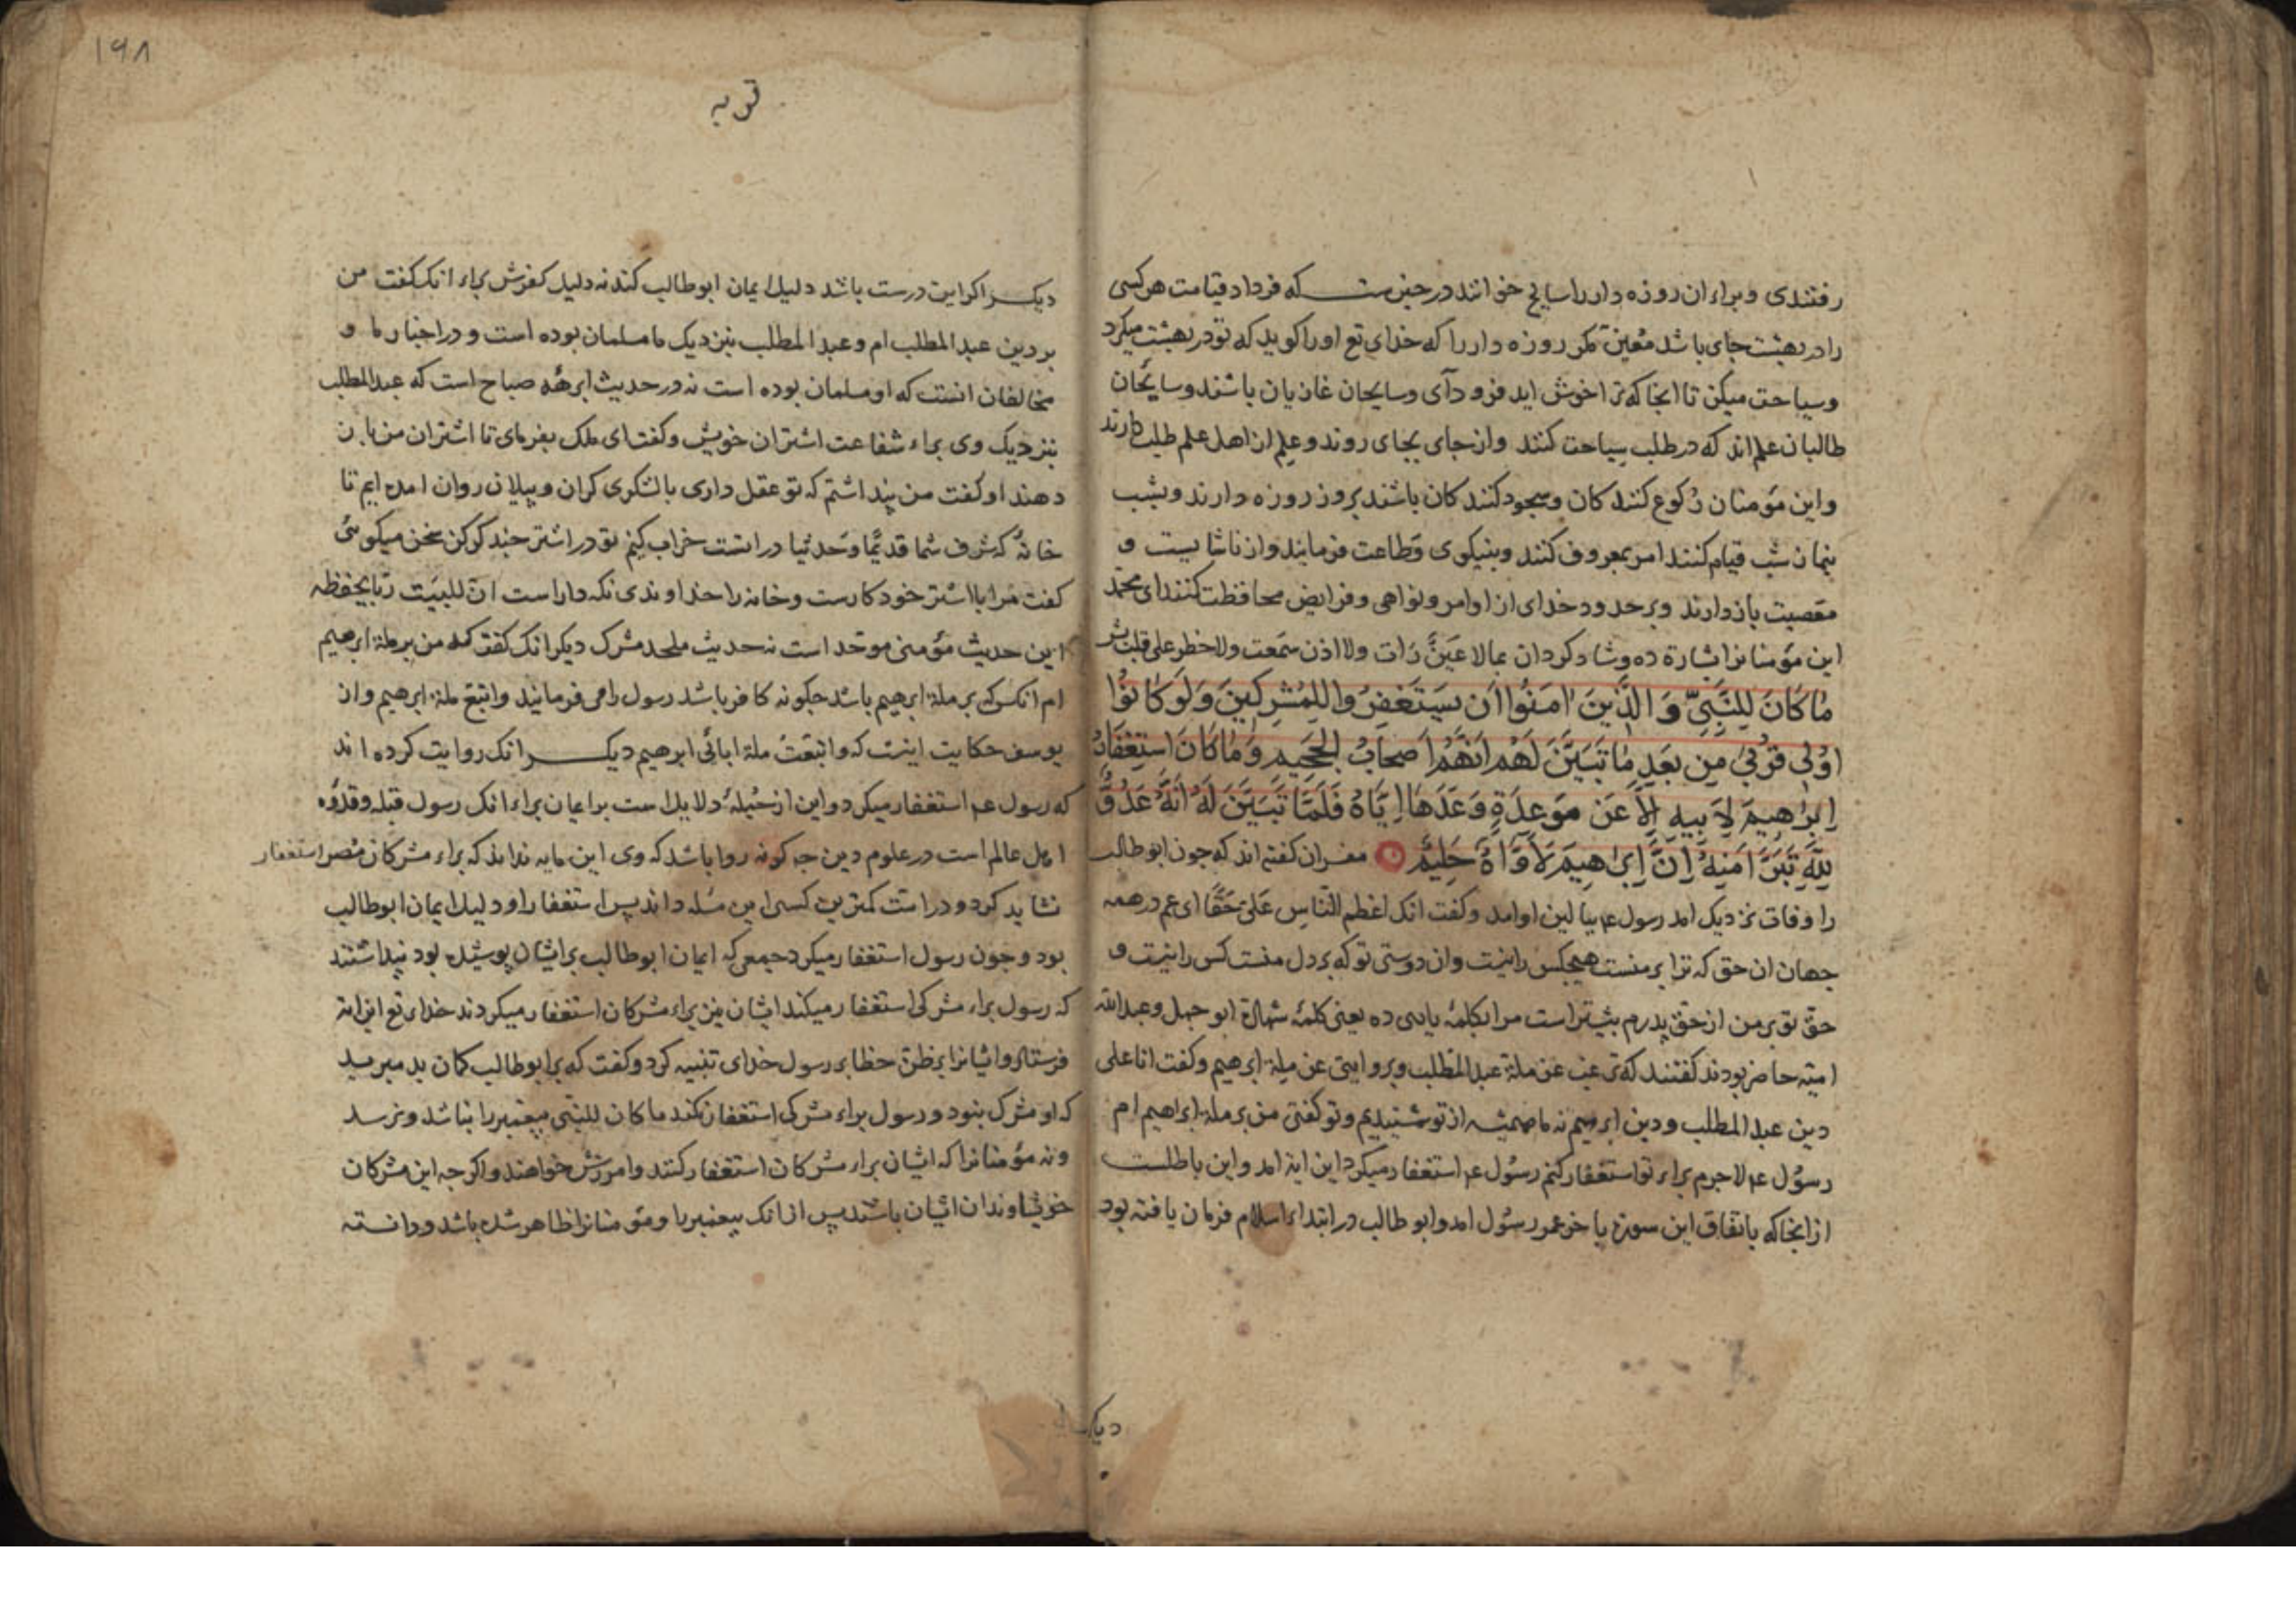 رفتندی و براء ان روزه دار را سایح خوانند در خبرست که فردا دقیامت هر کسی
را در بهشت جای باشد معین مکر روزه دار را که خدای تع او را کوید که تو در بهشت میکرد
و سیاحت میکن تا انجا که ترا خوش اید فرود آی و سایحان غازیان باشند و سایحان
طالبان علم اند که در طلب سیاحت کنند و از جای بجای روند و علم از اهل علم طلب دارند
و این مؤمنان رکوع کنندکان و سجود کنندکان باشند بروز روزه دارند و بشب
بنماز شب قیام کنند امر بمعروف کنند و بنیکوی و طاعت فرمایند و از ناشایست و
معصیت باز دارند و بر حدود خدای از اوامر و نواهی و فرایض محافظت کنند ای محمد
این مؤمنانرا بشارة ده و شاد کردان بما لا عین رات ولا اذن سمعت ولا خطر علی قلب بشر
مَا كَانَ لِلنَّبِيِّ وَالَّذِينَ اٰمَنُوا اَن يَسْتَغْفِرُوا لِلْمُشْرِكِينَ وَلَوْ كَانُوْا
اُولِى قُرْبٰى مِن بَعْدِ مَا تَبَيَّنَ لَهُمْ اَنَّهُمْ اَصْحَابُ الْجَحِيمِ وَمَا كَانَ اسْتِغْفَارُ
اِبْرٰهِيمَ لِاَبِيهِ اِلَّا عَن مَوْعِدَةٍ وَعَدَهَا اِيَّاهُ فَلَمَّا تَبَيَّنَ لَهُ اَنَّهُ عَدُوٌّ
لِلّٰهِ تَبَرَّاَ مِنهُ اِنَّ اِبْرٰهِيمَ لَاَوَّاهٌ حَلِيمٌ مفسران کفته اند که جون ابو طالب
را وفات نزدیک امد رسول عم ببالین او امد و کفت انک اعظم الناس علیّ حقّا ای عم در همه
جهان ان حق که ترا بر منست هیجکس را نیست و ان دوستی تو که بر دل منست کس را نیست و
حق تو بر من از حق پدرم بیشتر است مرا بکلمهٔ یاری ده یعنی کلمهٔ شهادة ابو جهل و عبدالله
امیه حاضر بودند کفتند که ترغب عن ملة عبد المطلب و بروایتی عن ملة ابرهیم و کفت انا علی
دین عبد المطلب و دین ابرهیم نه ما همیشه از تو شنیدیم و تو کفتی من بر ملة ابراهیم ام
رسول عم لا جرم براء تو استغفار کنم رسول عم استغفار میکرد این ایة امد و این باطلست
از انجا که باتفاق این سورة باخر عمر رسول امد و ابو طالب در ابتداء اسلام فرمان یافته بود
دیکر
۱۹۸
توبه
دیکر اکر این درست باشد دلیل ایمان ابو طالب کند نه دلیل کفرش براء انک کفت من
بر دین عبد المطلب ام و عبد المطلب بنزدیک ما مسلمان بوده است و در اخبار ما و
مخالفان انست که او مسلمان بوده است نه در حدیث ابرههٔ صباح است که عبد المطلب
بنزدیک وی براء شفاعت اشتران خویش و کفت ای ملک بفرمای تا اشتران من باز
دهند او کفت من پنداشتم که تو عقل داری با لشکری کران و پیلان روان امده ایم تا
خانهٔ که شرف شما قدیما و حدیثا در انست خراب کنیم تو در اشتر جند کوکن سخن میکوئی
کفت مرا با اشتر خود کارست و خانه را خداوندی نکه دار است ان للبیت ربا یحفظه
این حدیث مؤمنی موحّد است نه حدیث ملحد مشرک دیکر انک کفت که من بر ملة ابرهیم
ام انکس که بر ملة ابرهیم باشد جکونه کافر باشد رسول را می فرمایند و اتبع ملة ابرهیم و ان
یوسف حکایت اینست که و اتبعت ملة ابائی ابرهیم دیکر انک روایت کرده اند
که رسول عم استغفار میکرد و این از جملهٔ دلایل است بر ایمان براء انک رسول قبله و قدوه
اهل عالم است در علوم دین جه کونه روا باشد که وی این مایه نداند که براء مشرکان مصر استغفار
نشاید کرد و در است کمترین کسی این مسله داند پس استغفار او دلیل ایمان ابو طالب
بود و جون رسول استغفار میکرد جمعی که ایمان ابو طالب بر ایشان پوشیده بود پنداشتند
که رسول براء مشرکی استغفار میکند ایشان نیز براء مشرکان استغفار میکردند خدای تع این ایة
فرستاد و ایشانرا بر ظن خطا بر رسول خدای تنبیه کرد و کفت که بر ابو طالب کمان بد میبرید
که او مشرک نبود و رسول براء مشرک استغفار نکند ما کان للنبی پیغمبر را نباشد و نرسد
و نه مؤمنانرا که ایشان براء مشرکان استغفار کنند و امرزش خواهند و اکر جه این مشرکان
خویشاوندان ایشان باشند پس از انک پیغمبر را و مؤمنانرا ظاهر شده باشد و دانسته